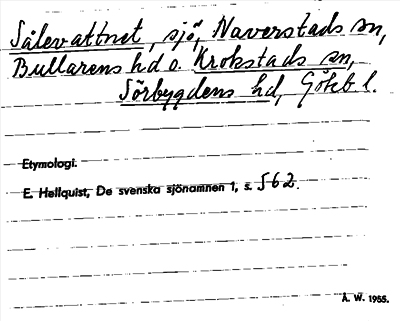 Sålevattnet, sjö, Naverstads sn,
Bullarens hd o. Krokstads sn,
Sörbygdens hd, Götebl.
Etymologi.
E. Hellquist, De svenska sjönamnen 1, s. 562.
Å. W. 1955.